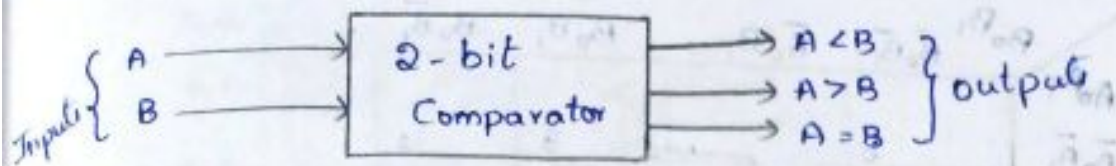 Inputs { A
B
2-bit
Comparator
A<B
A>B
A=B
} outputs